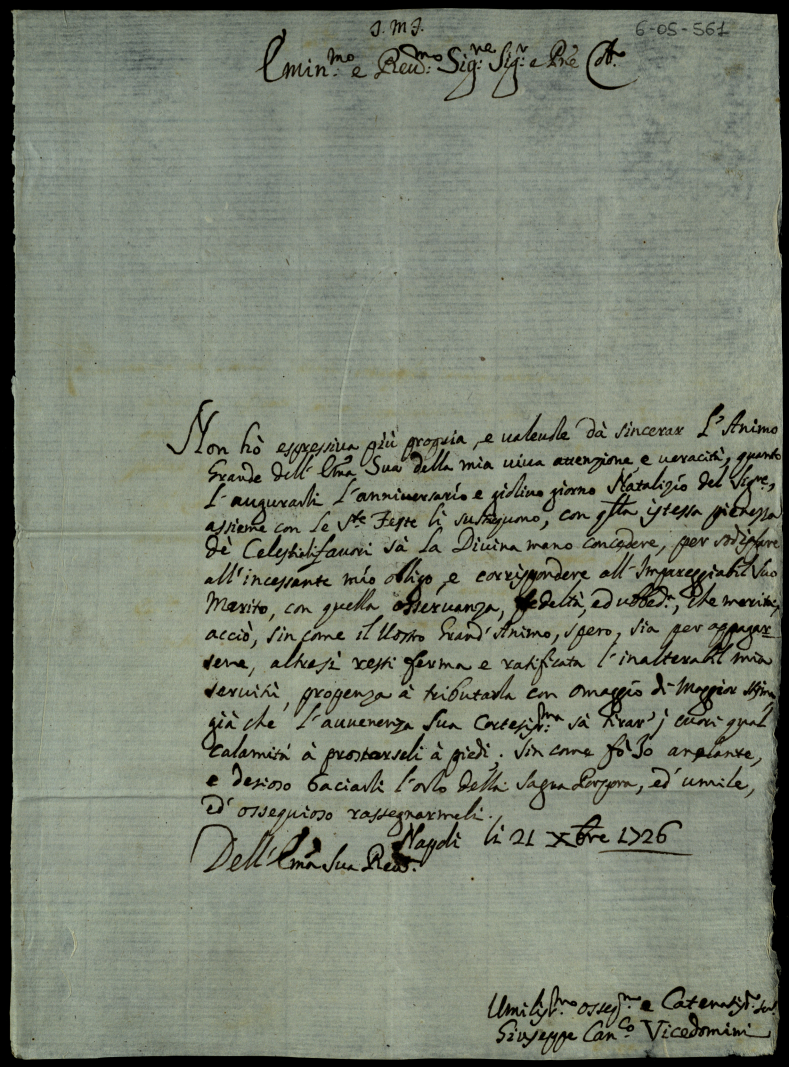 J. M. J.
6-05-561
Emin.mo e Reu.mo Sig.re Sig.r e Pn̄e
Non hò espressiua più propria, e ualeuole dà sincerar L'Animo
Grande dell'Em̄a Sua della mia uiua attenzione, e ueracità, quanto
L'augurarli L'anniuersario e gioliuo giorno Natalizio del Sig.re,
assieme con le S.te Feste li susseguono, con q.lla istessa pienezza
dè Celestiali fauori sà La Diuina mano concedere, per sodisfare
all'incessante mio obligo, e corrispondere all'Impareggiabil Suo
Merito, con quella osseruanza, fedeltà, ed ubbed:, che merita,
acciò, sin come il Uostro Grand'Animo, spero, sia per appagar
sene, altresì resti ferma e ratificata l'inalterabil mia
seruitù, à tributarla con omaggio di Maggior stima
già che l'auuenenza Sua Cortesiss.ma sà tirar' i cuori qual
calamita à prostarseli à piedi; sin come fò Io anelante,
e desioso baciarli l'orlo della Sagra Porpora, ed' umile,
ed' ossequioso rassegnarmeli.
Napoli li 21 Xbre 1726
Dell'Em̄a Sua Reu.
Umiliss.mo osseq.mo e Catenatiss.
Giuseppe Can.co Vicedomini